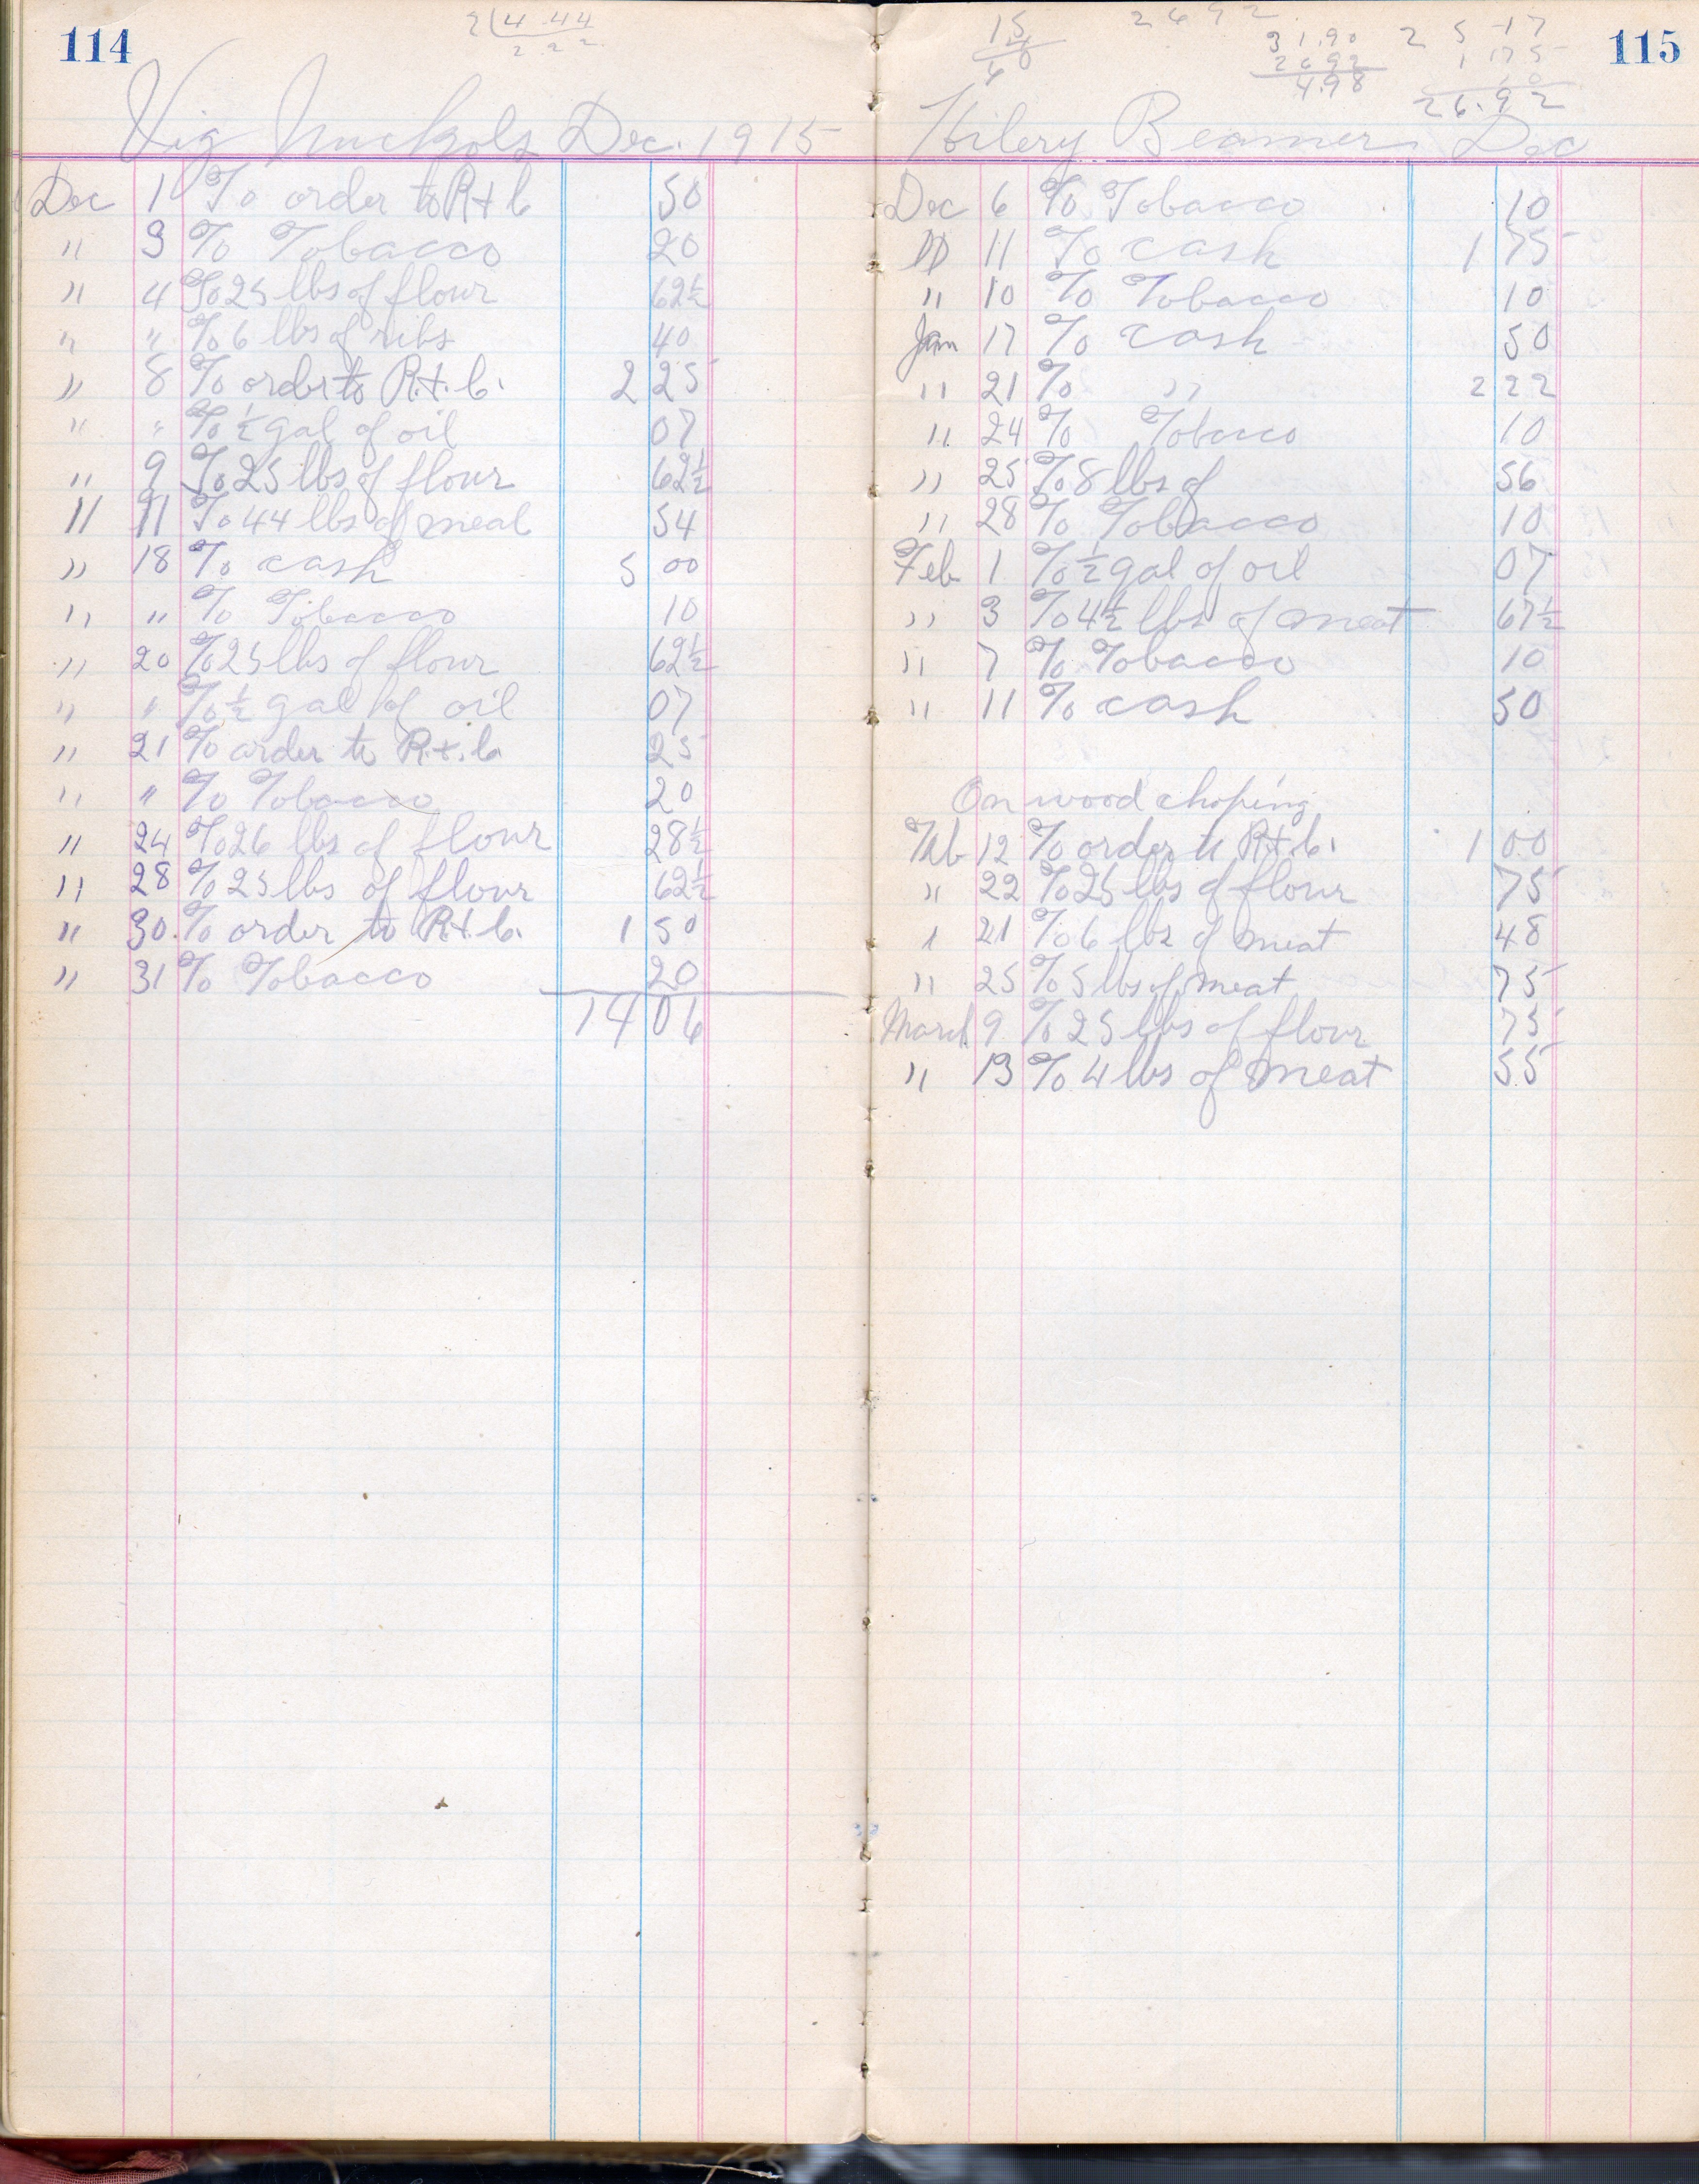 114
2(4.44
2.22
Vig Nuckols Dec. 1915
Dec 1 To order to R+C 50
" 3 To Tobacco 20
" 4 To 25 lbs of flour 62½
" " To 6 lbs of ribs 40
" 8 To order to R.+.C. 2 25
" " To ½ gal of oil 07
" 9 To 25 lbs of flour 62½
" 11 To 44 lbs of meal 54
" 18 To cash 5 00
" " To Tobacco 10
" 20 To 25 lbs of flour 62½
" " To ½ gal of oil 07
" 21 To order to R.+.C. 25
" " To Tobacco 20
" 24 To 26 lbs of flour 28½
" 28 To 25 lbs of flour 62½
" 30 To order to R.+.C. 1 50
" 31 To Tobacco 20
14 06
115
15
60
2692
31.90
26.92
4.98
25 17
1 75
26.92
Hilery Beamer Dec
Dec 6 To Tobacco 10
" 11 To cash 1 75
" 10 To Tobacco 10
Jan 17 To cash 50
" 21 To " 2 22
" 24 To Tobacco 10
" 25 To 8 lbs of 56
" 28 To Tobacco 10
Feb 1 To ½ gal of oil 07
" 3 To 4½ lbs of meat 67½
" 7 To Tobacco 10
" 11 To cash 50
On wood choping
Feb 12 To order to R.+.C. 1 00
" 22 To 25 lbs of flour 75
" 21 To 6 lbs of meat 48
" 25 To 5 lbs of meat 75
March 9 To 25 lbs of flour 75
" 13 To 4 lbs of meat 55